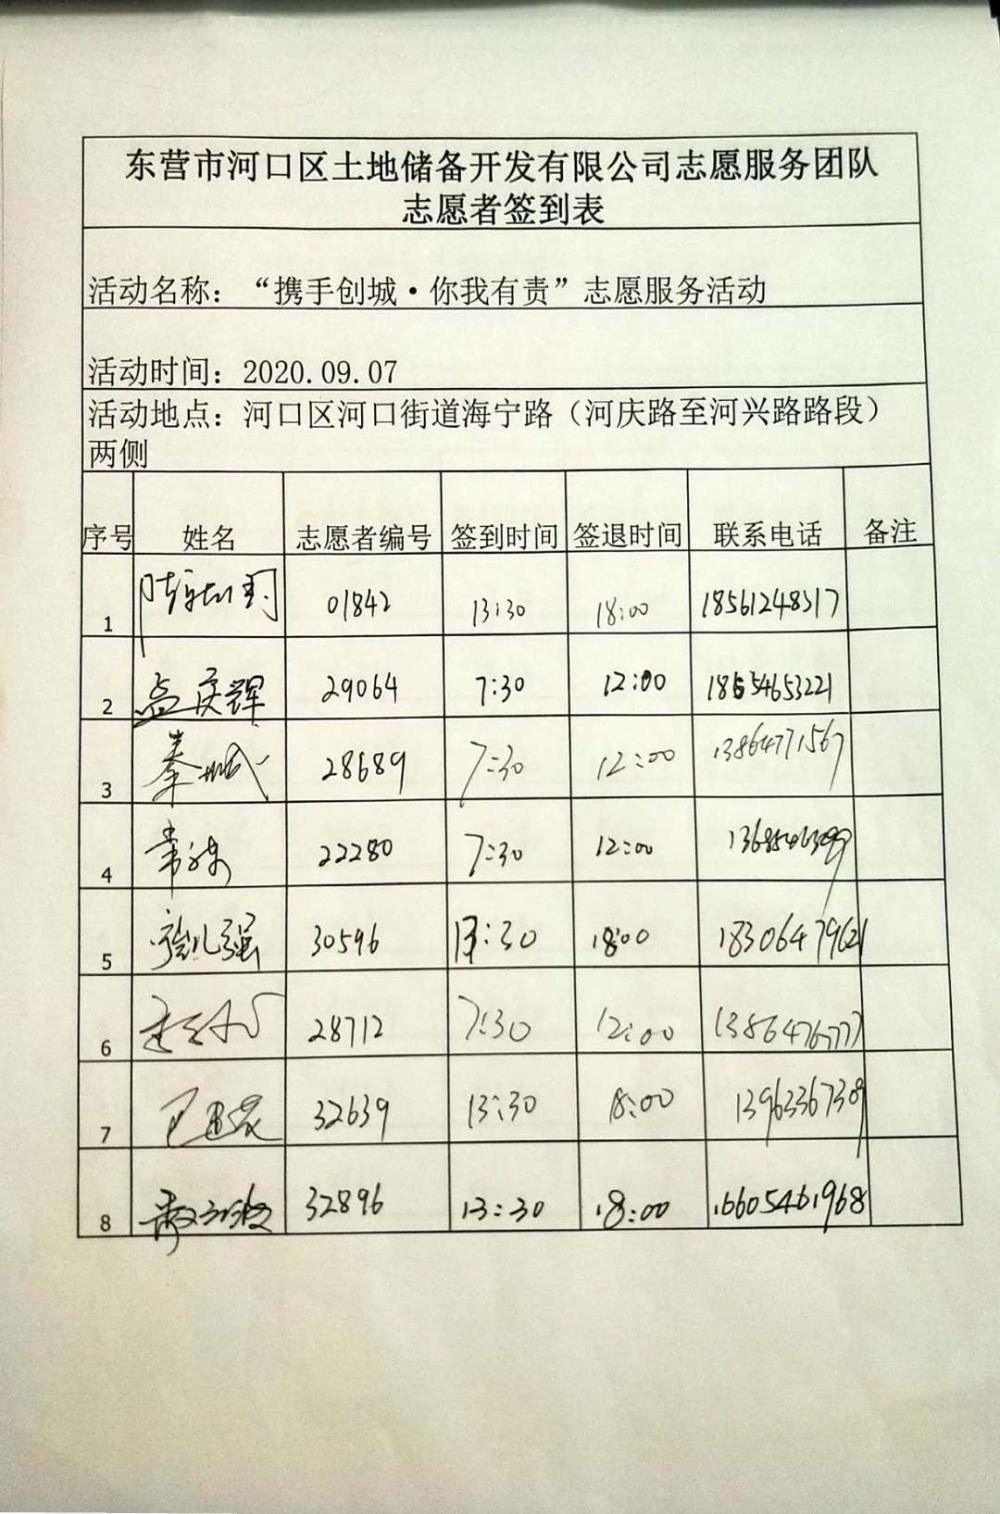 东营市河口区土地储备开发有限公司志愿服务团队
志愿者签到表
活动名称：“携手创城·你我有责”志愿服务活动
活动时间：2020.09.07
活动地点：河口区河口街道海宁路（河庆路至河兴路路段）
两侧
序号 姓名 志愿者编号 签到时间 签退时间 联系电话 备注
1 01842 13:30 18:00 18561248317
2 孟庆辉 29064 7:30 12:00 18654653221
3 秦 28689 7:30 12:00 13864771567
4 22280 7:30 12:00
5 30596 13:30 18:00 18306479621
6 28712 7:30 12:00
7 32639 13:30 18:00
8 32896 13:30 18:00 16605461968